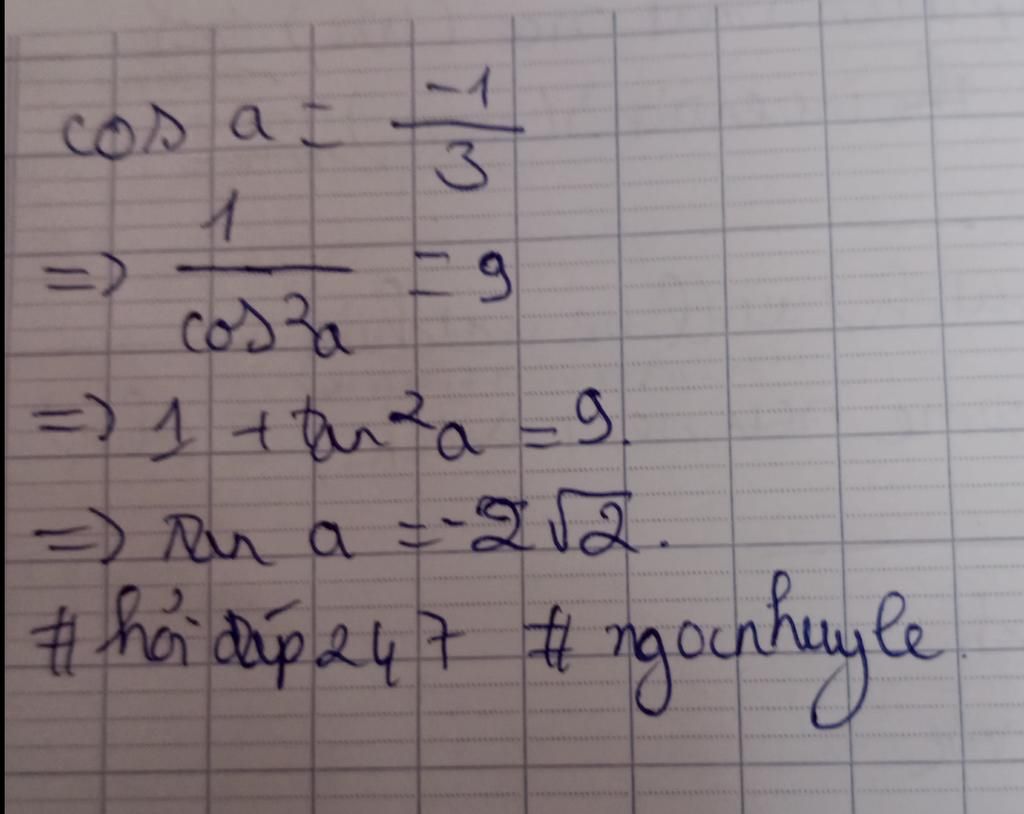 cos a = -1/3
=> 1/cos²a = 9
=> 1 + tan²a = 9.
=> tan a = -2√2.
# hỏi đáp 247 # ngocnhuyle.